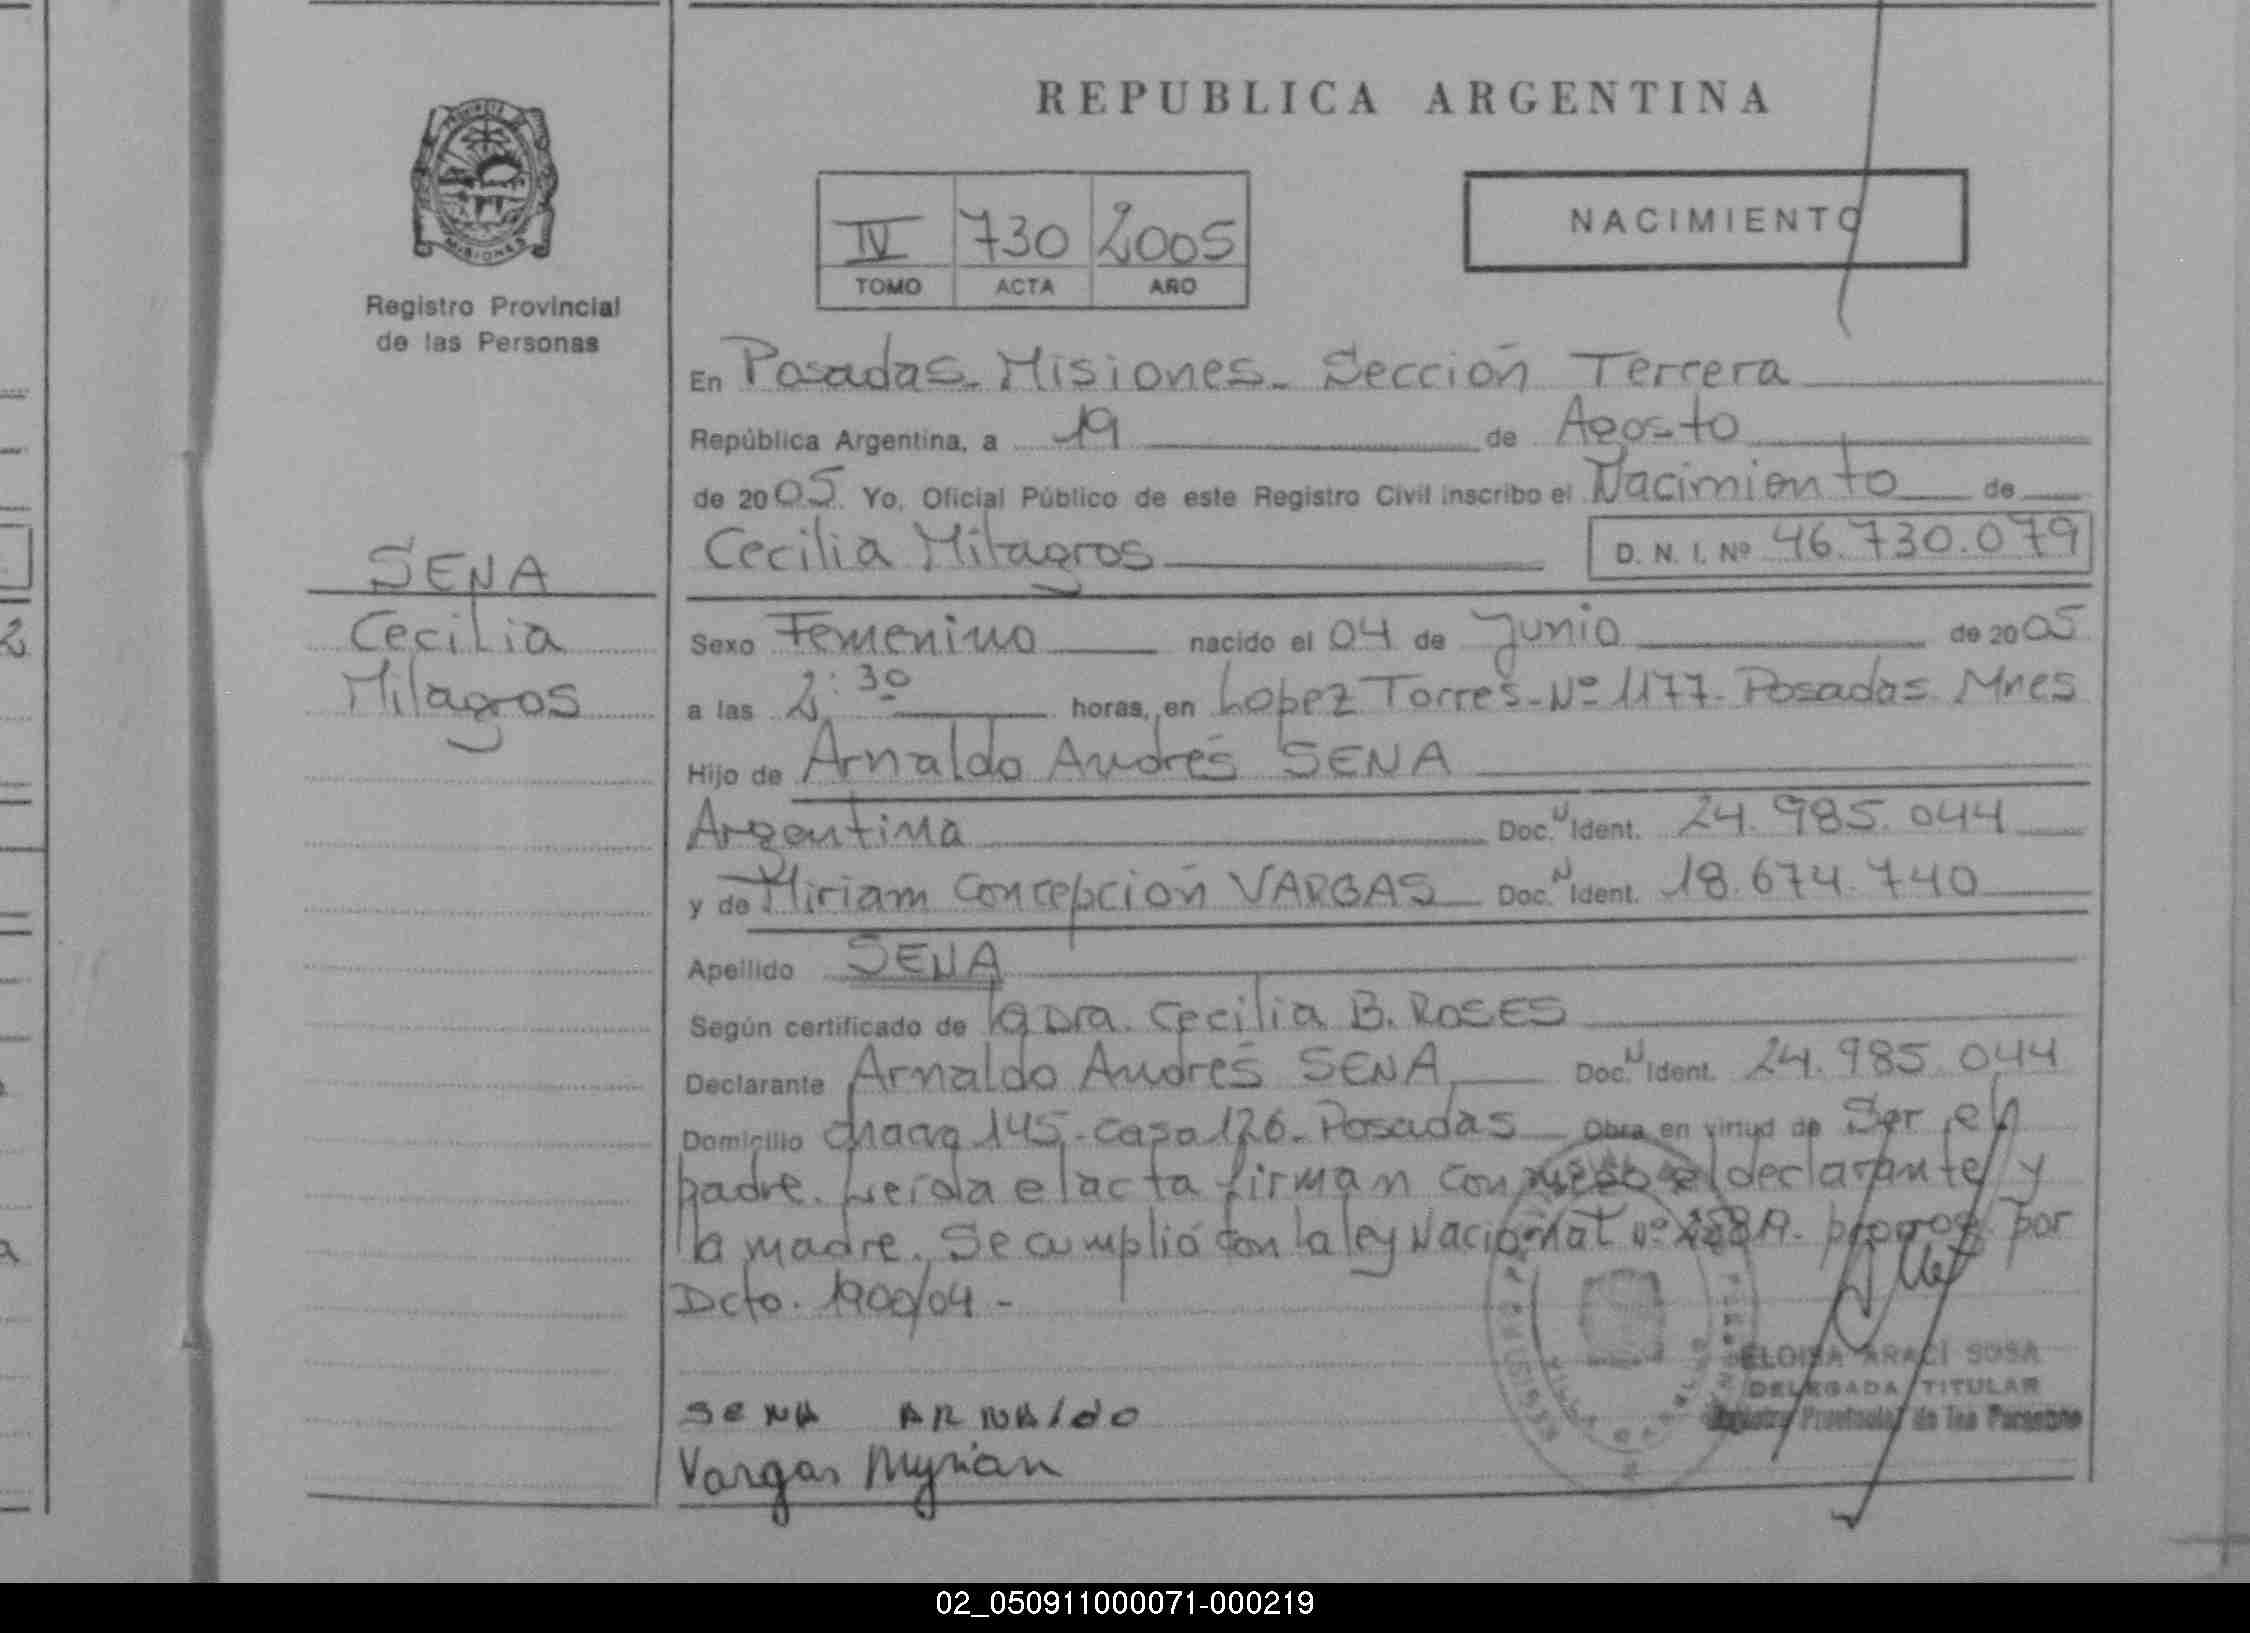 REPUBLICA ARGENTINA
PROVINCIA DE
MISIONES
Registro Provincial
de las Personas
IV 730 2005
TOMO ACTA AÑO
NACIMIENTO
En Posadas - Misiones - Sección Tercera
República Argentina, a 19 de Agosto
de 2005. Yo, Oficial Público de este Registro Civil inscribo el Nacimiento de
Cecilia Milagros D. N. I. Nº 46.730.079
SENA
Cecilia
Milagros
Sexo Femenino nacido el 04 de Junio de 2005
a las 2:30 horas, en Lopez Torres - Nº 1177 - Posadas Mnes
Hijo de Arnaldo Andrés SENA
Argentina Doc. N Ident. 24.985.044
y de Miriam Concepción VARGAS Doc. N Ident. 18.674.740
Apellido SENA
Según certificado de la Dra. Cecilia B. ROSES
Declarante Arnaldo Andrés SENA Doc. N Ident. 24.985.044
Domicilio chacra 145 - casa 126 - Posadas Obra en virtud de Ser el
padre. Leída el acta firman el declarante y
la madre. Se cumplió con la ley Nacional Nº por
Dcto. 1900/04 -
SENA ARNAldo
Vargas Myrian
ELOISA ARACI SOSA
DELEGADA TITULAR
Registro Provincial de las Personas
02_050911000071-000219